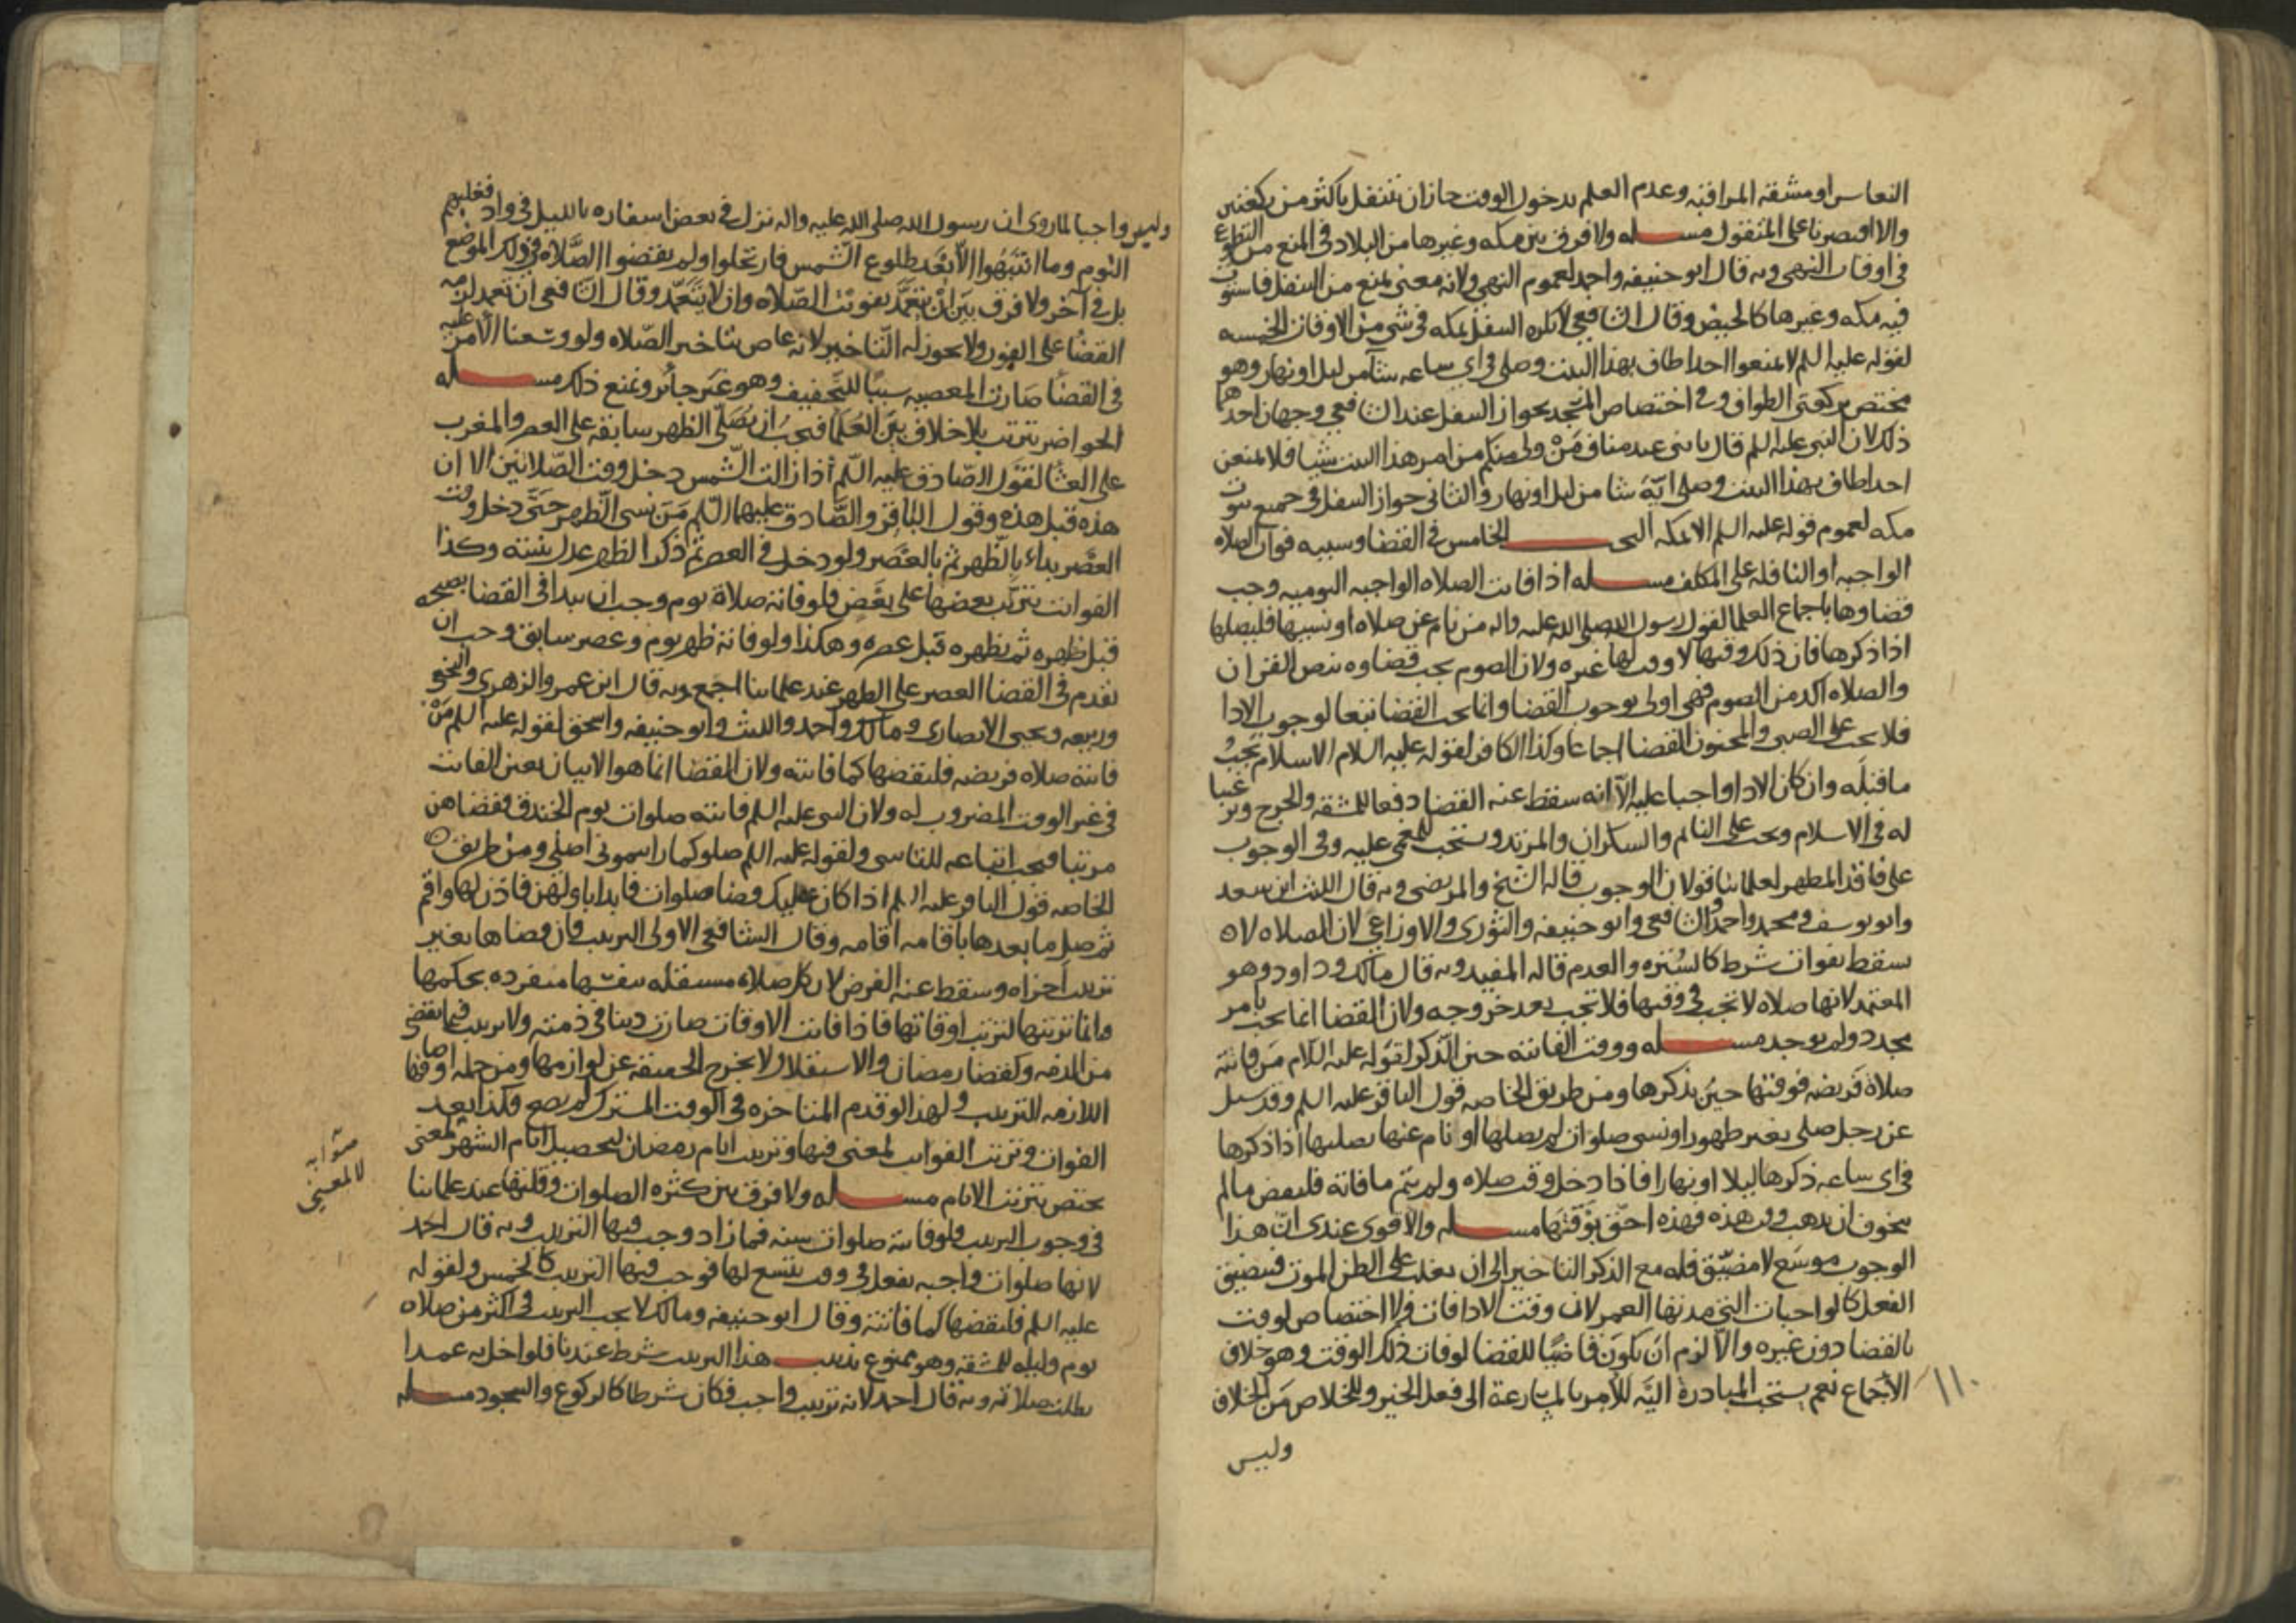 النعاس او مشقه المراقبه وعدم العلم بدخول الوقت جاز ان يتنفل باكثر من ركعتين
والا اقتصرنا على المنقول مسـله ولا فرق بين مكه وغيرها من البلاد فى المنع من التطوع
فى اوقات النهى وبه قال ابو حنيفه واحمد لعموم النهى ولانه معنى يمنع من التنفل فاستوت
فيه مكه وغيرها كالحيض وقال الشافعى لا يكره التنفل بمكه فى شى من الاوقات الخمسه
لقوله عليه السلم لا تمنعوا احدا طاف بهذا البيت وصلى فى اى ساعه شآ من ليل او نهار وهو
مختص بركعتى الطواف وفى اختصاص المسجد بجواز التنفل عند الشافعى وجهان احدهما
ذلك لان النبى عليه السلم قال يا بنى عبد مناف مَنْ ولى منكم من امر هذا البيت شيا فلا يمنعن
احدا طاف بهذا البيت وصلى ايّة شا من ليل او نهار والثانى جواز التنفل فى جميع بيوت
مكه لعموم قوله عليه السلم الا بمكه البحـث الخامس فى القضا وسببه فوات الصلاه
الواجبه او النافله على المكلف مسـله اذا فاتت الصلاه الواجبه اليوميه وجب
قضاوها باجماع العلما لقول رسول الله صلى الله عليه واله من نام عن صلاه او نسيها فليصلها
اذا ذكرها فان ذلك وقتها لا وقت لها غيره ولان الصوم يجب قضاوه بنص القران
والصلاه اكد من الصوم فهى اولى بوجوب القضا وانما يجب القضا تبعا لوجوب الادا
فلا يجب على الصبى والمجنون القضا اجماعا وكذا الكافر لقوله عليه السلام الاسلام يَجُبُ
ما قبلَه وان كان الادا واجبا عليه الآ انه سقط عنه القضا دفعا للمشقه والحرج وترغيبا
له فى الاسلام ويجب على النائم والسكران والمرتد ويستحب للمغمى عليه وفى الوجوب
على فاقد المطهر لعلمائنا قولان الوجوب قاله الشيخ والمرتضى وبه قال الليث ابن سعد
وابو يوسف ومحمد واحمد والشافعى وابو حنيفه والثورى والاوزاعى لان الصلاه لا
تسقط بفوات شرط كالسُتره والعدم قاله المفيد وبه قال مالك وداود وهو
المعتمد لانها صلاه لا تجب فى وقتها فلا تجب بعد خروجه ولان القضا انما يجب بامر
مجدد ولم يوجد مسـله ووقت الفائته حين الذكر لقوله عليه السلام مَن فاتته
صلاة فريضه فوقتها حين يذكرها ومن طريق الخاصه قول الباقر عليه السلم وقد سيل
عن رجل صلى بغير طهور او نسى صلوات لم يصلها او نام عنها يصليها اذا ذكرها
فى اى ساعه ذكرها ليلا او نهارا فاذا دخل وقت صلاه ولم يتم ما فاته فليقض ما لم
يتخوف ان يذهب وقت هذه وهذه احق بوَقتها مسـله والاقوى عندى انّ هذا
الوجوب موسَع لا مضيّق فله مع الذكر التاخير الى ان يغلب على الظن الموت فيتضيق
الفعل كالواجبات التى مدتها العمر لان وقت الادا فات ولا اختصاص لوقت
بالقضا دون غيره والا لزم ان يكون قاضيًا للقضا لو فات ذلك الوقت وهو خلاف
الاجماع نعم يستحب المبادرة اليَه للامر بالمسارعة الى فعل الخير وللخلاص مَن الخلاف
١١٠
وليس
وليس واجبا لما روى ان رسول الله صلى الله عليه واله نزل فى بعض اسفاره بالليل فى واد فغلبهم
النوم وما انتبَهُوا الآ بعَد طلوع الشَّمس فارتحلوا ولم يقضوا الصَّلاه فى ذلك الموضع
بل فى آخر ولا فرق بَين اَن يتعمَّد بفويت الصّلاه وان لا يتَعَمّد وقال الشافعى ان تعمد لزمه
القضاُ على الفور ولا يجوز له التاخير لانه عاص بتاخير الصّلاه ولو وسّعنا الامر عليه
فى القضاُ صَارت المعصيه سببًا للتَخفيف وهو غَير جائر ونمنع ذلك مسـله
الحواضر تترتب بلا خلاف بيَن العُلما فيجبُ ان يُصَلّى الظهر سابقه على العصر والمغرب
على العشا لقَول الصّادق عليه السّلم اذا زالت الشّمس دخل وقت الصّلاتين الا ان
هذه قبل هذه وقول البَاقر والصَّادق عليهما السّلم مَن نسى الظهر حَتى دخل وقت
العصر بداء بالظهر ثم بالعَصر ولو دخل فى العصر ثم ذكر الظهر عدل بنيته وكذا
الفوائت يترتّب بعضها على بعَض فلو فاته صلاة يوم وجب ان يبدا فى القضا بصبحه
قبل ظهره ثم بظهره قبل عصره وهكذا ولو فاته ظهر يوم وعصر سابق وجب ان
يقدم فى القضا العصر على الظهر عند علمائنا اجمع وبه قال ابن عمر والزهرى والنخعى
وربيعه ويحيى الانصارى ومالك واحمد والليث وابو حنيفه واسحق لقوله عليه السلم مَن
فاتته صلاه فريضه فليقضها كما فاتته ولان القضا انما هو الاتيان بعين الفائت
فى غير الوقت المضروب له ولان النبى عليه السلم فاتته صلوات يوم الخندق فقضاهن
مرتبا فيجب اتباعه للتاسى ولقوله عليه السلم صلوا كما رايتمونى اصلى ومن طريق
الخاصه قول الباقر عليه السلم اذا كان عليك قضا صلوات فابدا باولهن فاذن لها واقم
ثم صل ما بعدها باقامه اقامه وقال الشافعى الاولى الترتيب فان قضاها بغير
ترتيب اجزاه وسقط عنه الفرض لان كل صلاه مستقله بنفسها منفرده بحكمها
وانما ترتيبها لترتيب اوقاتها فاذا فاتت الاوقات صارت دينا فى ذمته ولا ترتيب فيما يقضى
من الذمه وكقضا رمضان والاستقلال لا يخرج الحقيقه عن لوازمها ومن جمله اوصافها
اللازمه الترتيب ولهذا لو قدم المتاخره فى الوقت المشترك لم يصح وكذا بعد
الفوات وترتيب الفوائت لمعنى فيها وترتيب ايام رمضان لتحصيل ايام الشهر لمعنى
يختص بترتيب الايام مسـله ولا فرق بين كثره الصلوات وقلتها عند علمائنا
فى وجوب الترتيب ولو فاتته صلوات سنه فما زاد وجب فيها الترتيب وبه قال احمد
لانها صلوات واجبه تفعل فى وقت يتسع لها فوجب فيها الترتيب كالخمس ولقوله
عليه السلم فليقضها كما فاتته وقال ابو حنيفه ومالك لا يجب الترتيب فى اكثر من صلاه
يوم وليله للمشقه وهو ممنوع تذنيب هذا الترتيب شرط عندنا فلو اخل به عمدا
بطلت صلاته وبه قال احمد لانه ترتيب واجب فكان شرطا كالركوع والسجود مسـله
صوابه
لا لمعنى